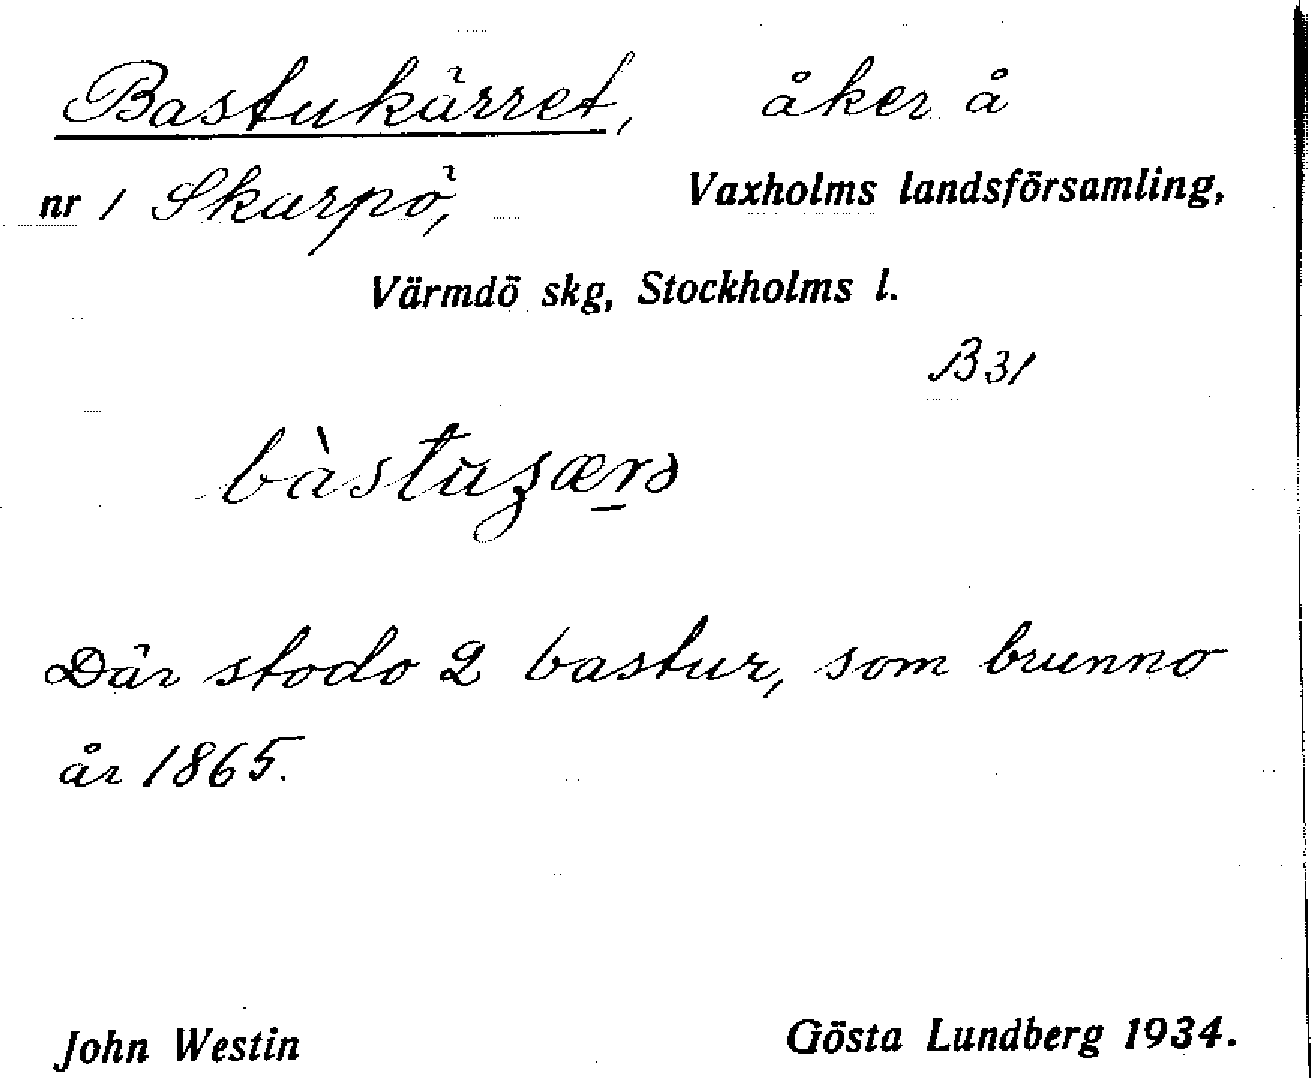 Bastukärret, åker å
nr 1 Skarpö, Vaxholms landsförsamling,
Värmdö skg, Stockholms l.
B 31
Där stodo 2 bastur, som brunno
år 1865.
John Westin Gösta Lundberg 1934.